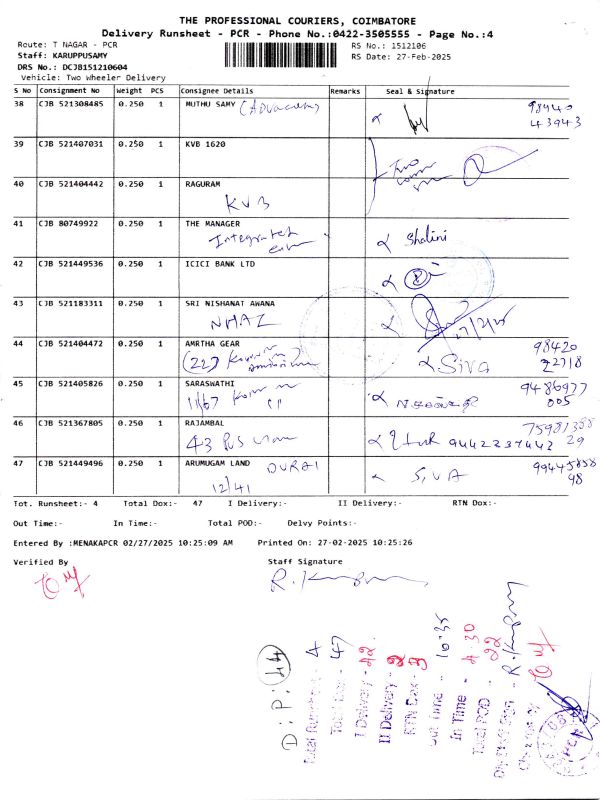 THE PROFESSIONAL COURIERS, COIMBATORE
Delivery Runsheet - PCR - Phone No.:0422-3505555 - Page No.:4
Route: T NAGAR - PCR
RS No.: 1512106
Staff: KARUPPUSAMY
RS Date: 27-Feb-2025
DRS No.: DCJB151210604
Vehicle: Two Wheeler Delivery
S No Consignment No Weight PCS Consignee Details Remarks Seal & Signature
38 CJB 521308485 0.250 1 MUTHU SAMY (Advocate) 98440
43943
39 CJB 521407031 0.250 1 KVB 1620
40 CJB 521404442 0.250 1 RAGURAM
KVB
41 CJB 80749922 0.250 1 THE MANAGER
Integrated Shalini
42 CJB 521449536 0.250 1 ICICI BANK LTD
43 CJB 521183311 0.250 1 SRI NISHANAT AWANA
NHAI
44 CJB 521404472 0.250 1 AMRTHA GEAR 98420
(227 Siva 22718
45 CJB 521405826 0.250 1 SARASWATHI 9486977
11/67 005
46 CJB 521367805 0.250 1 RAJAMBAL
43 Bus 9442237442 29
47 CJB 521449496 0.250 1 ARUMUGAM LAND DURAI
12/41 SIVA 98
Tot. Runsheet:- 4 Total Dox:- 47 I Delivery:- II Delivery:- RTN Dox:-
Out Time:- In Time:- Total POD:- Delvy Points:-
Entered By :MENAKAPCR 02/27/2025 10:25:09 AM Printed On: 27-02-2025 10:25:26
Verified By Staff Signature
D:P:44
Total Runsheet - 4
Total Dox - 47
I Delivery - 42
II Delivery - 2
RTN Dox - 3
Out Time - 10:35
In Time - 4 30
Total POD - 22